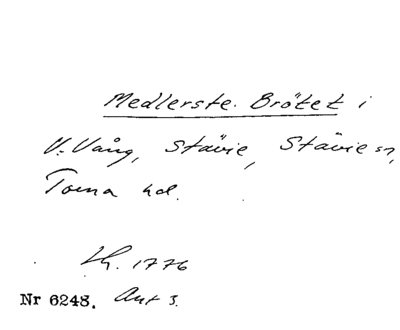 Medlerste. Brötet i
V. Vång, Stävie, Stävie sn,
Torna hd.
Lh. 1776
Nr 6248. Akt 3.